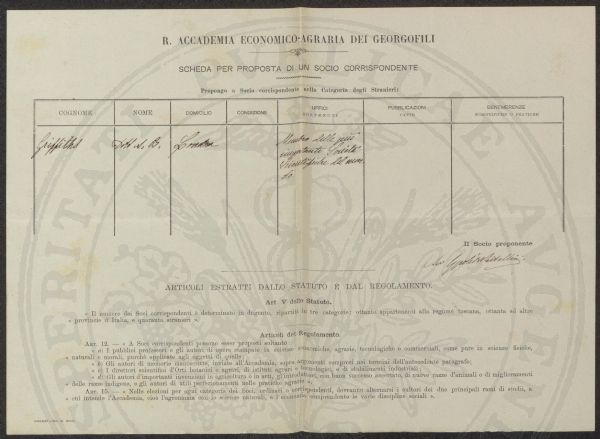 R. ACCADEMIA ECONOMICO-AGRARIA DEI GEORGOFILI
SCHEDA PER PROPOSTA DI UN SOCIO CORRISPONDENTE
Propongo a Socio corrispondente nella Categoria degli Stranieri:
COGNOME NOME DOMICILIO CONDIZIONE UFFICI PUBBLICAZIONI BENEMERENZE
Griffiths A. B. Londra Membro delle più
importanti Società
Scientifiche del mon
do
Il Socio proponente
ARTICOLI ESTRATTI DALLO STATUTO E DAL REGOLAMENTO.
Art. V dello Statuto.
« Il numero dei Soci corrispondenti è determinato in dugento, ripartiti in tre categorie: ottanta appartenenti alla regione toscana, ottanta ad altre
provincie d'Italia, e quaranta stranieri ».
Articoli del Regolamento.
ART. 12. — « A Soci corrispondenti possono esser proposti soltanto
« a) I pubblici professori e gli autori di opere stampate in scienze economiche, agrarie, tecnologiche o commerciali, come pure in scienze fisiche,
naturali e morali, purché applicate agli oggetti di quelle;
« b) Gli autori di memorie manoscritte, inviate all'Accademia, sopra argomenti compresi nei termini dell'antecedente paragrafo;
« c) I direttori scientifici d'Orti botanici e agrari, di istituti agrari e tecnologici, e di stabilimenti industriali;
« d) Gli autori d'importanti innovazioni in agricoltura o in arti, gl'introduttori, con buon successo accertato, di nuove razze d'animali e di miglioramenti
delle razze indigene, e gli autori di utili perfezionamenti nelle pratiche agrarie ».
ART. 15. — « Nelle elezioni per ogni categoria dei Soci, ordinari o corrispondenti, dovranno alternarsi i cultori dei due principali rami di studii, a
cui intende l'Accademia, cioè l'agronomia con le scienze naturali, e l'economia comprendente le varie discipline sociali ».